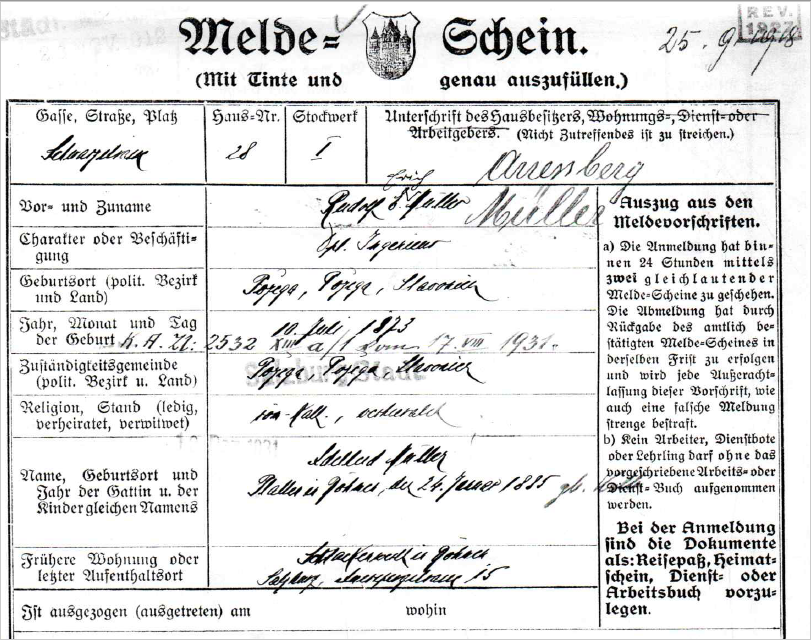 REV.
1927
Melde= Schein.
25. 9. 1918
(Mit Tinte und genau auszufüllen.)
Gasse, Straße, Platz
Haus=Nr.
Stockwerk
Unterschrift des Hausbesitzers, Wohnungs=, Dienst= oder
Arbeitgebers. (Nicht Zutreffendes ist zu streichen.)
28
I
Arrenberg
Erich
Vor= und Zuname
Rudolf E. Müller
Müller
Charakter oder Beschäfti=
gung
Dpl. Ingenieur
Geburtsort (polit. Bezirk
und Land)
Požega, Požega, Slavonien
Jahr, Monat und Tag
der Geburt
10. Juli 1873
K. A. Zl. 2532 XIII a/1 vom 17. VIII 1931.
Zuständigkeitsgemeinde
(polit. Bezirk u. Land)
Požega Požega Slavonien
Salzburg Stadt
Religion, Stand (ledig,
verheiratet, verwitwet)
röm-Kath., verheiratet
Name, Geburtsort und
Jahr der Gattin u. der
Kinder gleichen Namens
Adelheid Müller
24. Januar 1885
Frühere Wohnung oder
letzter Aufenthaltsort
Salzburg, 15
Ist ausgezogen (ausgetreten) am wohin
Auszug aus den
Meldevorschriften.
a) Die Anmeldung hat bin=
nen 24 Stunden mittels
zwei gleichlautender
Melde=Scheine zu geschehen.
Die Abmeldung hat durch
Rückgabe des amtlich be=
stätigten Melde=Scheines in
derselben Frist zu erfolgen
und wird jede Außeracht=
lassung dieser Vorschrift, wie
auch eine falsche Meldung
strenge bestraft.
b) Kein Arbeiter, Dienstbote
oder Lehrling darf ohne das
vorgeschriebene Arbeits= oder
Dienst=Buch aufgenommen
werden.
Bei der Anmeldung
sind die Dokumente
als: Reisepaß, Heimat=
schein, Dienst= oder
Arbeitsbuch vorzu=
legen.